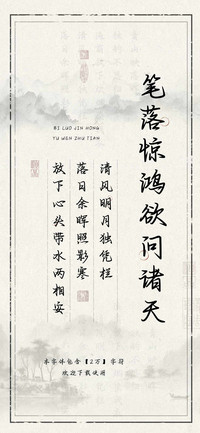 笔落惊鸿欲问诸天
BI LUO JIN HONG
YU WEN ZHU TIAN
清风明月独凭栏
落日余晖照影寒
放下心头带水两相妥
本字体包含【2万】字符
欢迎下载使用